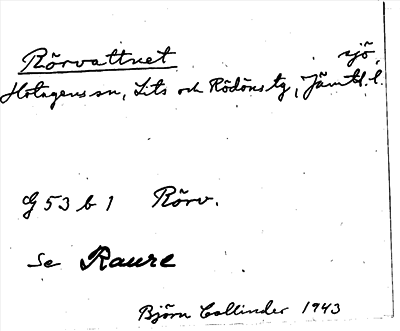 Rörvattnet sjö,
Hotagens sn, Lits och Rödöns tg, Jämtl. l.
G 53 b 1 Rörv.
Se Raure
Björn Collinder 1943